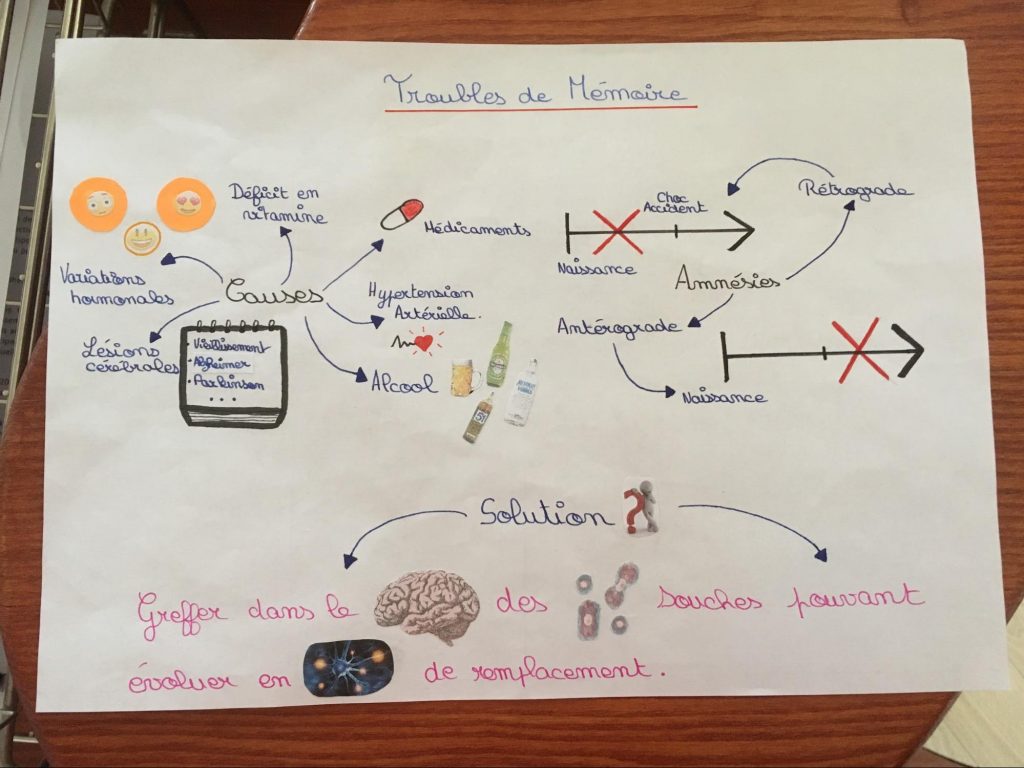 Troubles de Mémoire
Déficit en
vitamine
Médicaments
Variations
hormonales
Causes
Hypertension
Artérielle.
Lésions
cérébrales
• Vieillissement
• Alzheimer
• Parkinson
...
Alcool
51
Choc
Accident
Rétrograde
Naissance
Amnésies
Antérograde
Naissance
Solution ?
Greffer dans le des souches pouvant
évoluer en de remplacement.